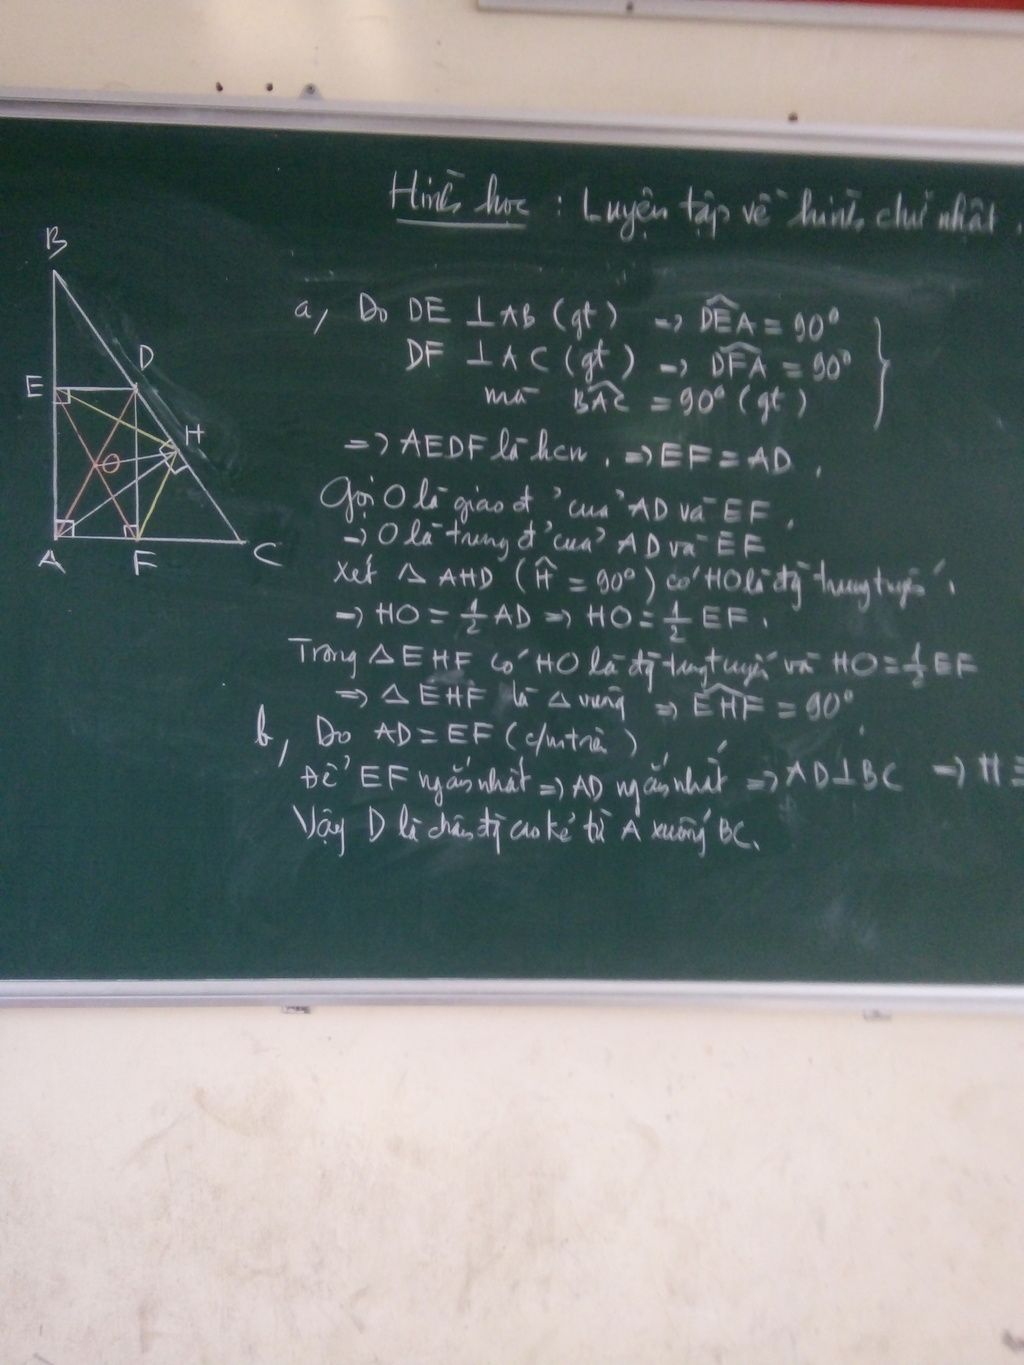 Hình học : Luyện tập về hình chữ nhật.
B
D
E
H
O
A
F
C
a, Do DE ⊥ AB (gt) => DEA = 90°
DF ⊥ AC (gt) => DFA = 90°
mà BAC = 90° (gt)
=> AEDF là hcn. => EF = AD.
Gọi O là giao đ' của AD và EF.
=> O là trung đ' của AD và EF
Xét Δ AHD (Ĥ = 90°) có HO là đg trung tuyến.
=> HO = 1/2 AD => HO = 1/2 EF.
Trong Δ EHF có HO là đg trung tuyến và HO = 1/2 EF
=> Δ EHF là Δ vuông => EHF = 90°
b, Do AD = EF (c/m trên)
Để EF ngắn nhất => AD ngắn nhất => AD ⊥ BC => H ≡
Vậy D là chân đg cao kẻ từ A xuống BC.